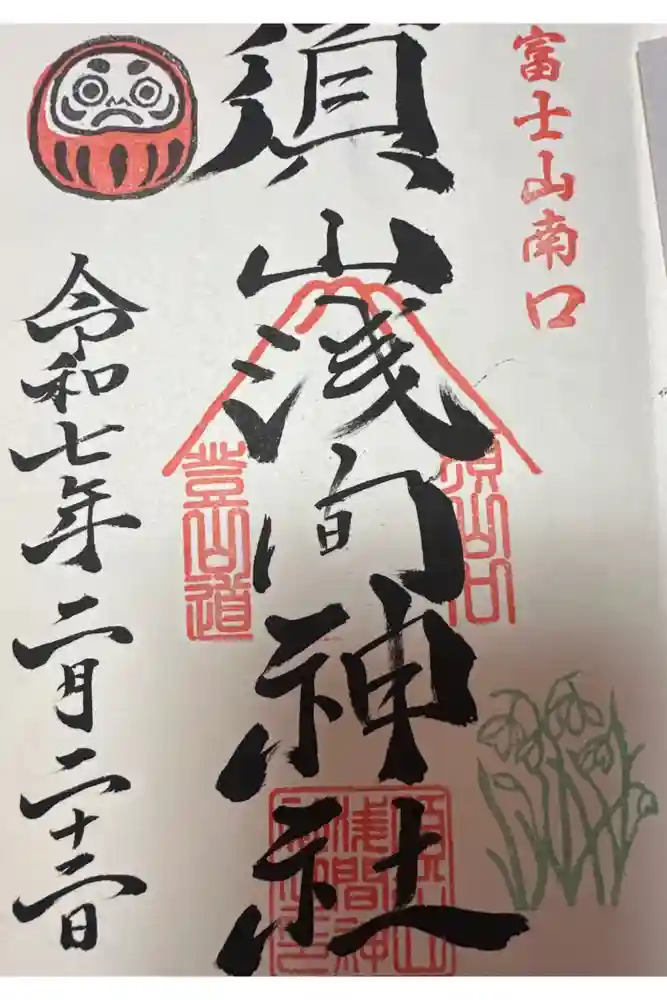 富士山南口
須山浅間神社
須山口
登山道
須山
浅間神
令和七年二月二十二日